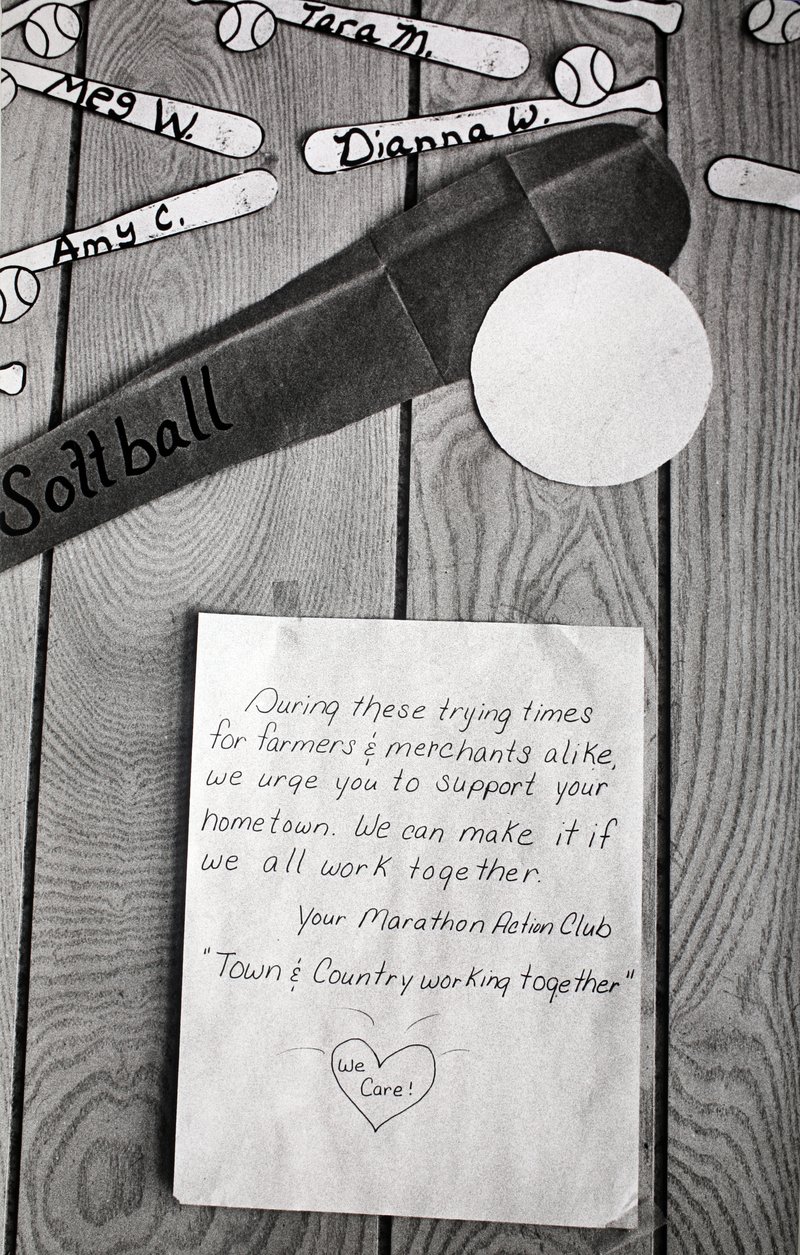 Tara M.
Meg W.
Dianna W.
Amy C.
Softball
During these trying times
for farmers & merchants alike,
we urge you to support your
hometown. We can make it if
we all work together.
Your Marathon Action Club
"Town & Country working together"
We
Care!